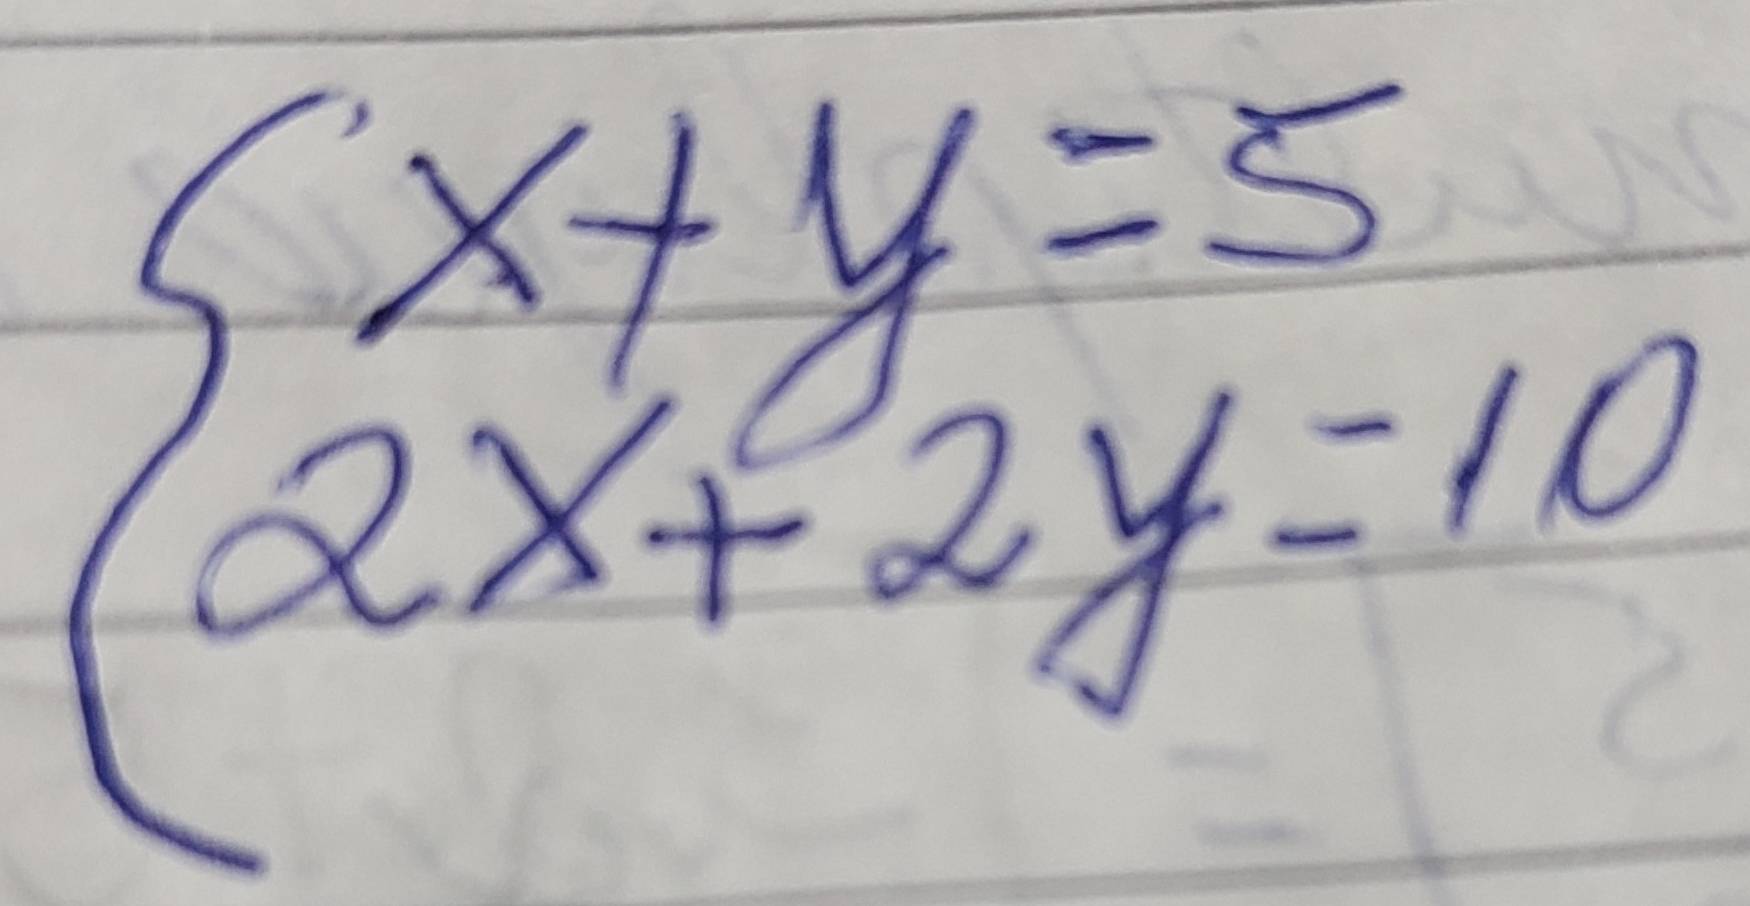 x+y=5
2x+2y=10